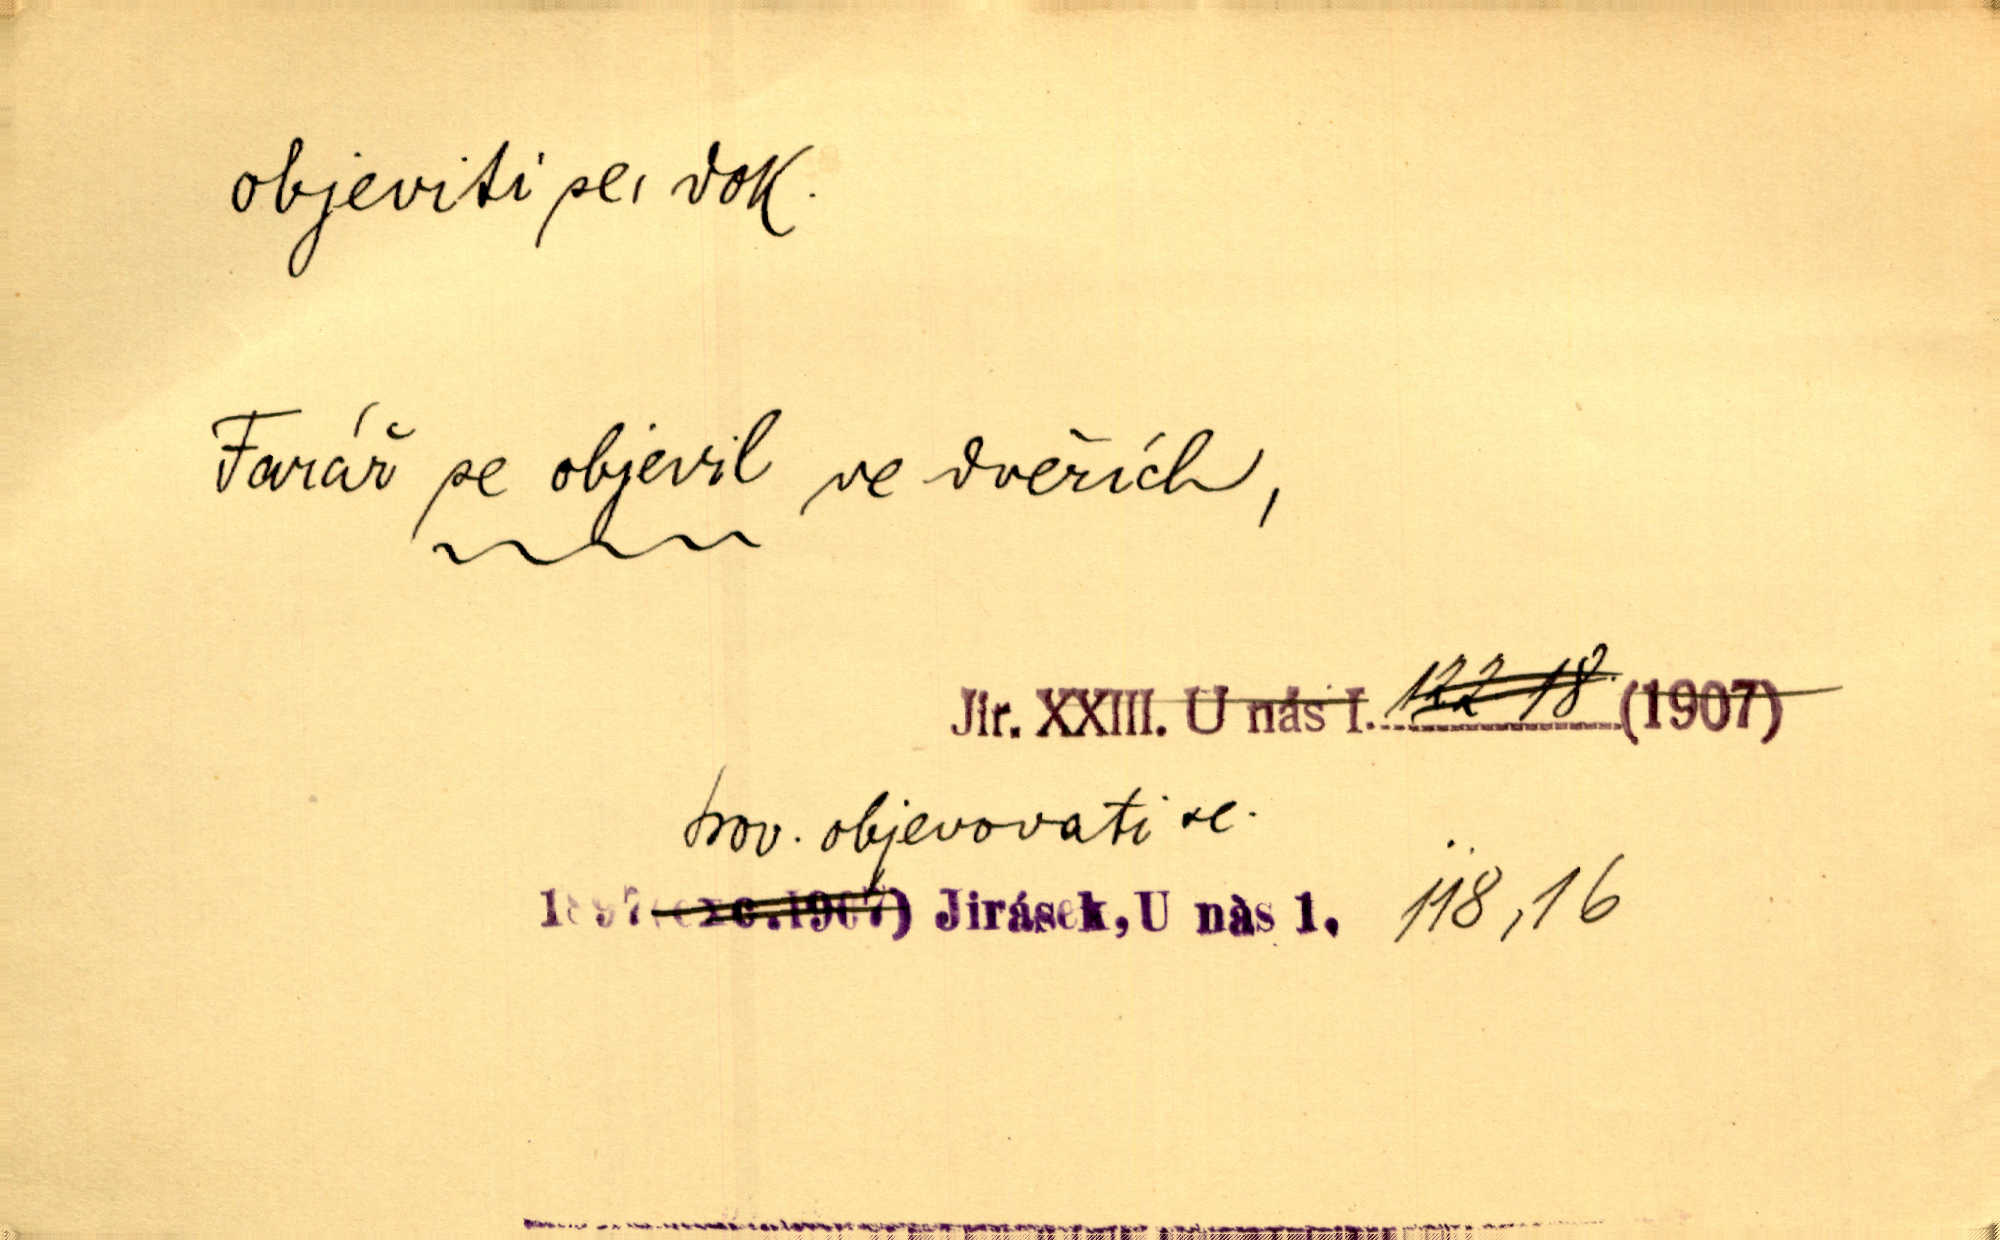 objeviti se, dok.
Farář se objevil ve dveřích,
Jir. XXIII. U nás I. 122 18 (1907)
srov. objevovati se.
1897 (exc. 1907) Jirásek, U nás 1. 118,16